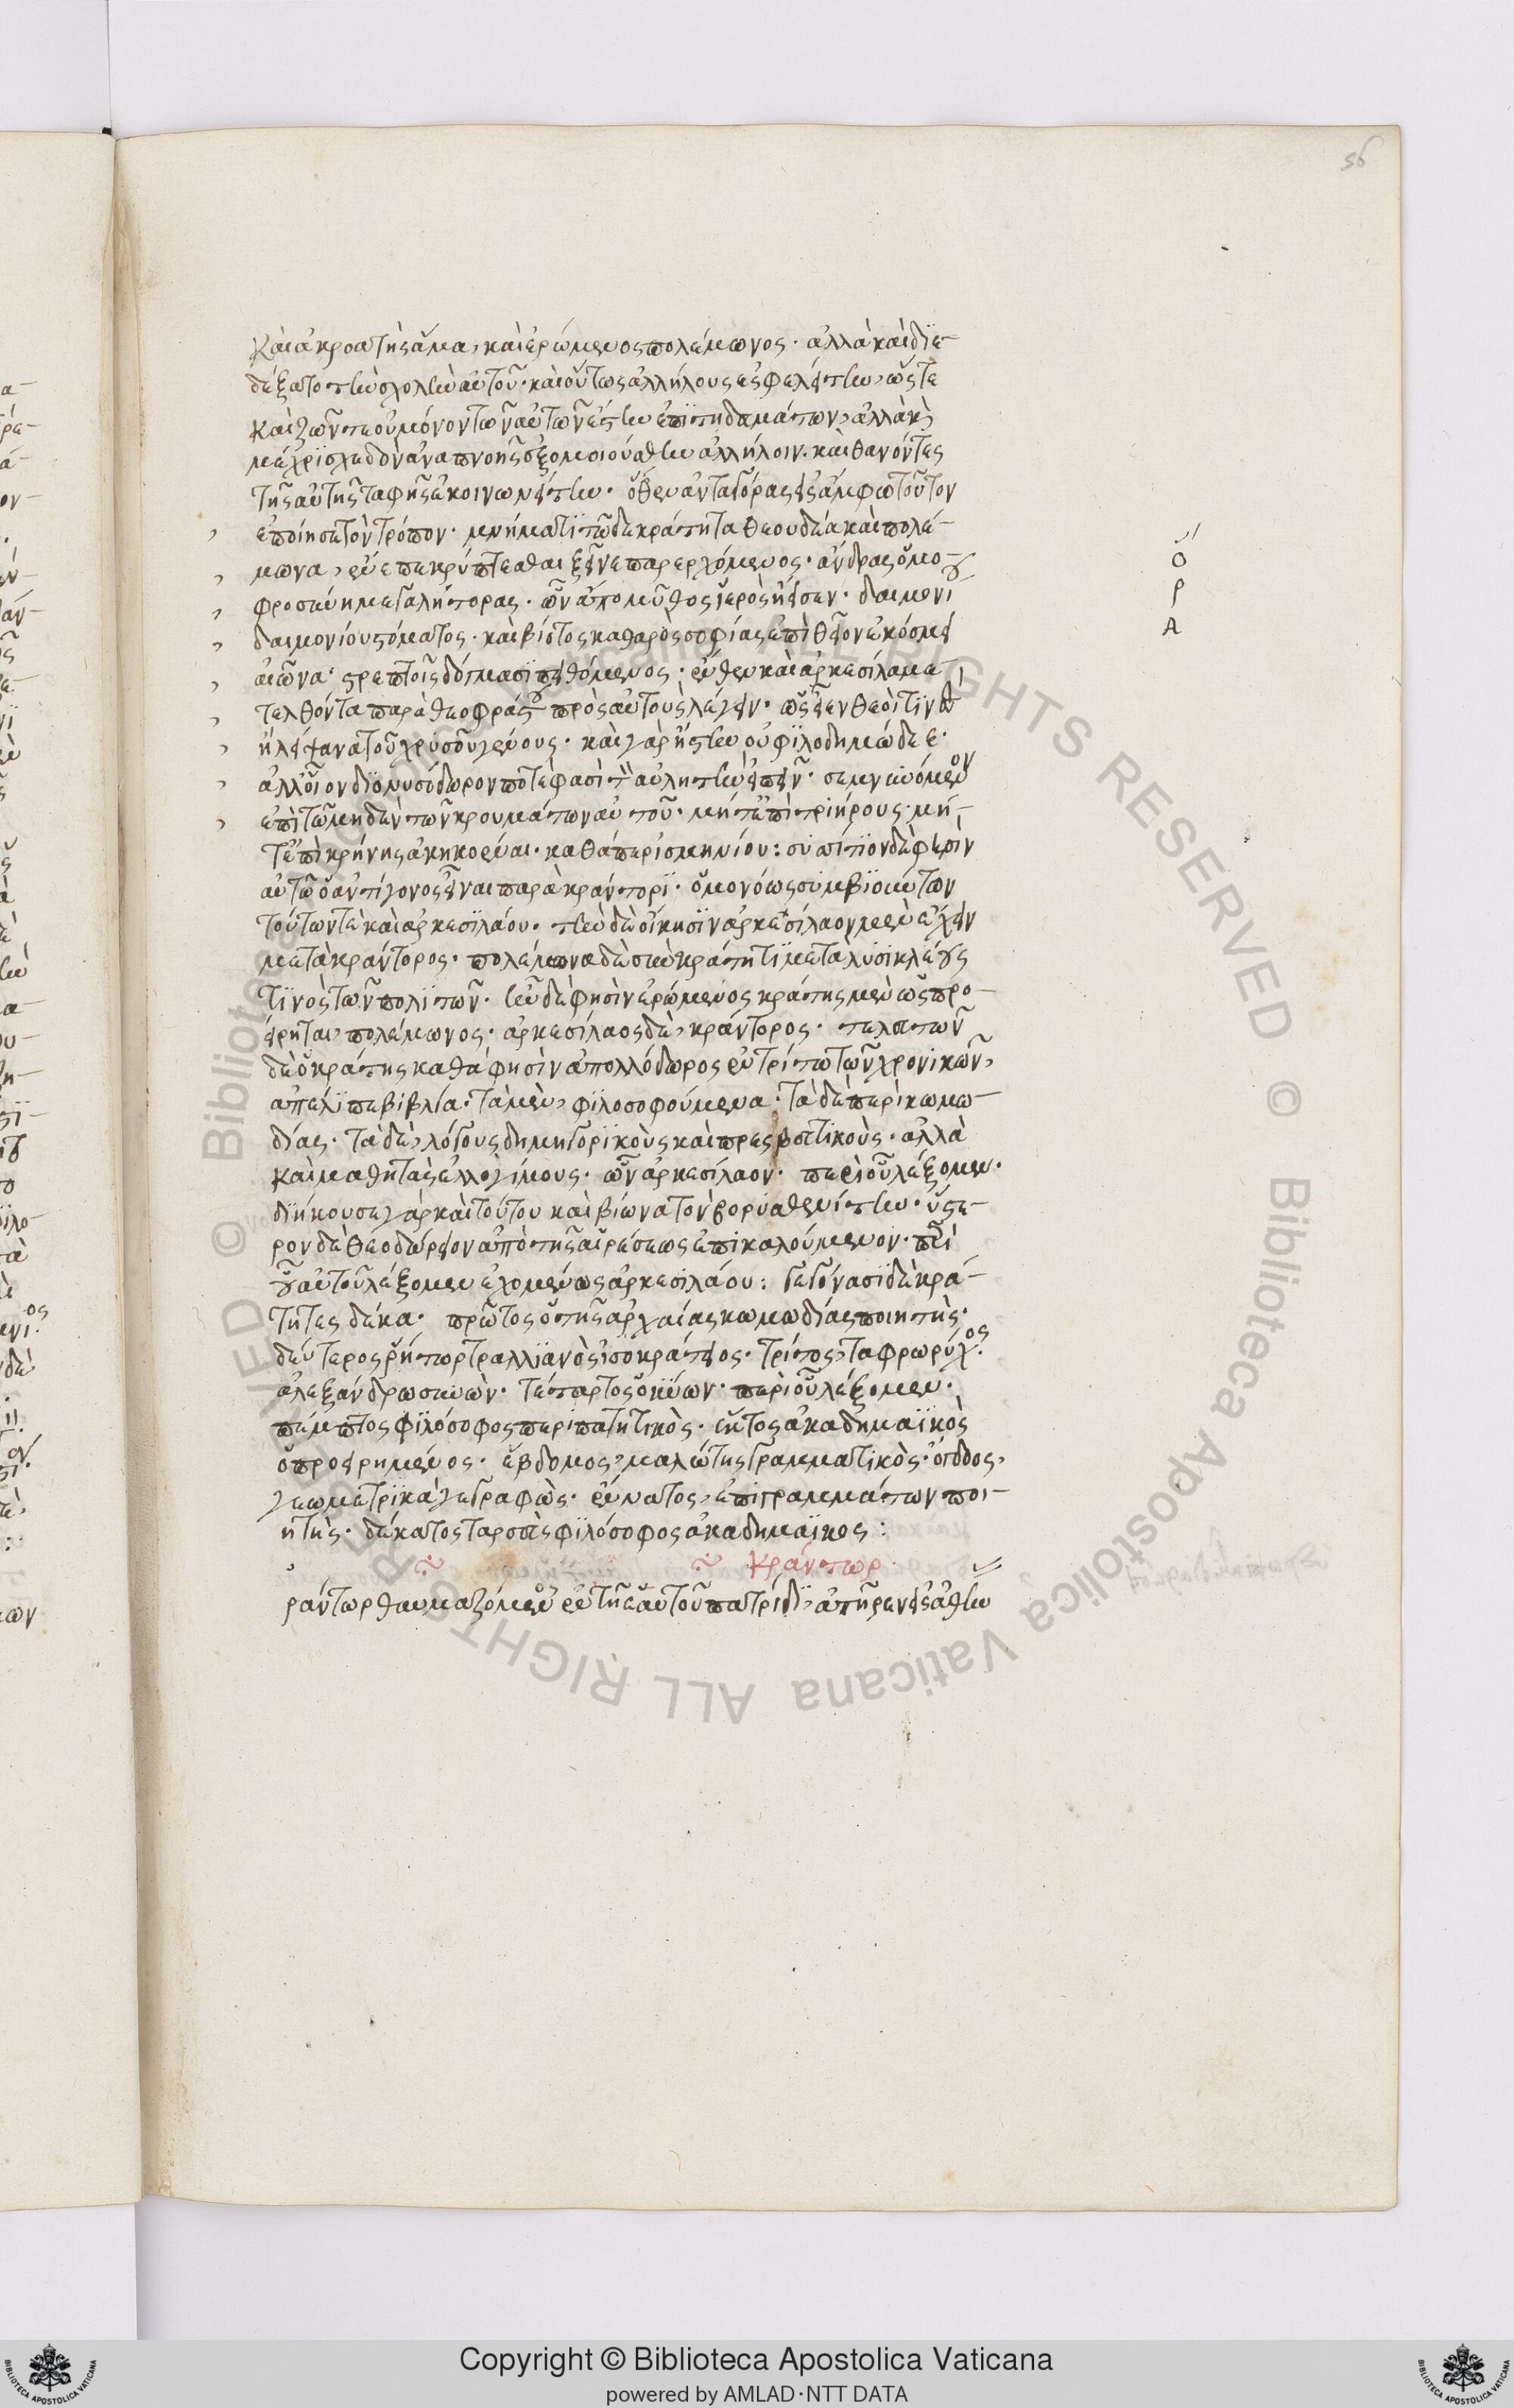 56
καὶ ἀκροατὴς ἅμα, καὶ ἐρώμενος πολέμωνος· ἀλλὰ καὶ διε-
δέξατο τὴν σχολὴν αὐτοῦ· καὶ οὕτως ἀλλήλους ἐφιλείτην, ὥστε
καὶ ζῶντε οὐ μόνον τῶν αὐτῶν ἔστην ἐπιτηδευμάτων, ἀλλὰ κ̀
μέχρι σχεδὸν ἀναπνοῆς ἐξομοιούσθην ἀλλήλοιν. καὶ θανόντες
τῆς αὐτῆς ταφῆς ἐκοινωνείτην. ὅθεν ἀνταγόρας εἰς ἄμφω τοῦτον
ἐποίησε τὸν τρόπον· μνήματι τῷδε κράτητα θεουδέα καὶ πολέ-
μωνα, ἔνεπε κρύπτεσθαι ξεῖνε παρερχόμενος· ἄνδρας ὁμο-
φροσύνη μεγαλήτορας· ὧν ἀπο μῦθος ἱερὸς ἤεισεν· δαιμονί
δαιμονίου στόματος· καὶ βίοτος καθαρὸς σοφίας ἐπὶ θεῖον ἐκόσμει
αἰῶνα· στρεπτοῖς δόγμασι πειθόμενος· ἔνθεν καὶ ἀρκεσίλα με-
τελθόντα παρὰ θεοφράστου πρὸς αὐτοὺς λέγειν· ὡς εἶεν θεοί τινὲς
ἢ λείψανα τοῦ χρυσοῦ γένους· καὶ γὰρ ἤστην οὐ φιλοδημώδεε·
ἀλλ' οἷον διονυσόδωρον ποτέ φασὶ τὸν αὐλητὴν εἰπεῖν· σεμνυνόμενον
ἐπὶ τῷ μηδὲν τῶν κρουμάτων αὐτοῦ· μήτ' ἐπὶ τριήρους· μή-
τ' ἐπὶ κρήνης ἀκηκοέναι· καθάπερ ἰσμηνίου: συσσίτιον δέ φησὶν
αὐτῷ ὁ ἀντίγονος εἶναι παρὰ κράντορι· ὁμονόως συμβιούντων
τούτων τὲ καὶ ἀρκεσιλάου· τὴν δὲ οἴκησιν ἀρκεσίλαον μὲν ἔχειν
μετὰ κράντορος· πολέμωνα δὲ σὺν κράτητι μετὰ λυσικλέους
τινὸς τῶν πολιτῶν. ἦν δέ φησὶν ἐρώμενος κράτης μὲν ὡς προ-
είρηται, πολέμωνος· ἀρκεσίλαος δὲ, κράντορος· τελευτῶν
δὲ ὁ κράτης καθά φησὶν ἀπολλόδωρος ἐν τρίτῳ τῶν χρονικῶν,
ἀπέλιπε βιβλία· τὰ μὲν, φιλοσοφούμενα· τὰ δὲ περὶ κωμω-
δίας· τὰ δὲ, λόγους δημηγορικοὺς καὶ πρεσβευτικοὺς· ἀλλὰ
καὶ μαθητὰς ἐλλογίμους· ὧν ἀρκεσίλαον· περὶ οὗ λέξομεν·
διήκουσε γὰρ καὶ τούτου καὶ βίωνα τὸν βορυσθενίτην· ὕστε-
ρον δὲ θεοδώρειον ἀπὸ τῆς αἱρέσεως ἐπικαλούμενον· περὶ
οὗ αὐτοῦ λέξομεν ἐχομένως ἀρκεσιλάου: γεγόνασι δὲ κρά-
τητες δέκα· πρῶτος ὁ τῆς ἀρχαίας κωμωδίας ποιητὴς·
δεύτερος ῥήτωρ τραλλιανὸς ἰσοκράτειος· τρίτος, ταφρωρύχος
ἀλεξάνδρω συνὼν· τέταρτος ὁ κύων· περὶ οὗ λέξομεν·
πέμπτος φιλόσοφος περιπατητικὸς· ἕκτος ἀκαδημαϊκὸς
ὁ προειρημένος· ἕβδομος, μαλώτης γραμματικὸς· ὄγδοος,
γεωμετρικὰ γεγραφὼς· ἔννατος, ἐπιγραμμάτων ποι-
ητὴς· δέκατος ταρσεὺς φιλόσοφος ἀκαδημαϊκος:
κράντωρ
ράντωρ θαυμαζόμενος ἐν τῇ ἑαυτοῦ πατρίδι, ἀπῆρεν εἰς ἀθήν
Ο
Ρ
Α